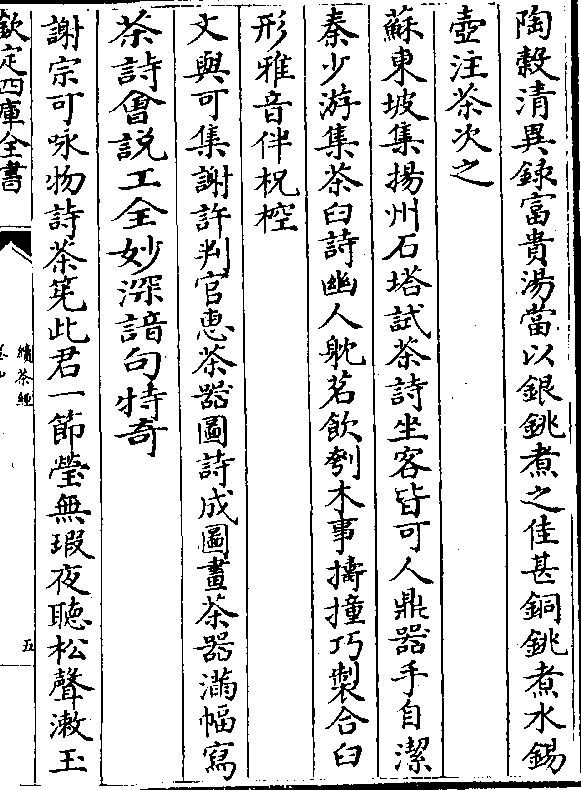 陶糓清異録富貴湯當以銀銚煮之佳甚銅銚煮水錫
壺注茶次之
蘇東坡集揚州石塔試茶詩坐客皆可人鼎器手自潔
秦少游集茶臼詩幽人躭茗飲刳木事擣撞巧製合臼
形雅音伴柷椌
文與可集謝許判官惠茶器圖詩成圖畫茶器滿幅寫
茶詩會説工全妙深諳句特奇
謝宗可咏物詩茶筅此君一節瑩無瑕夜聽松聲漱玉
欽定四庫全書
續茶經
五